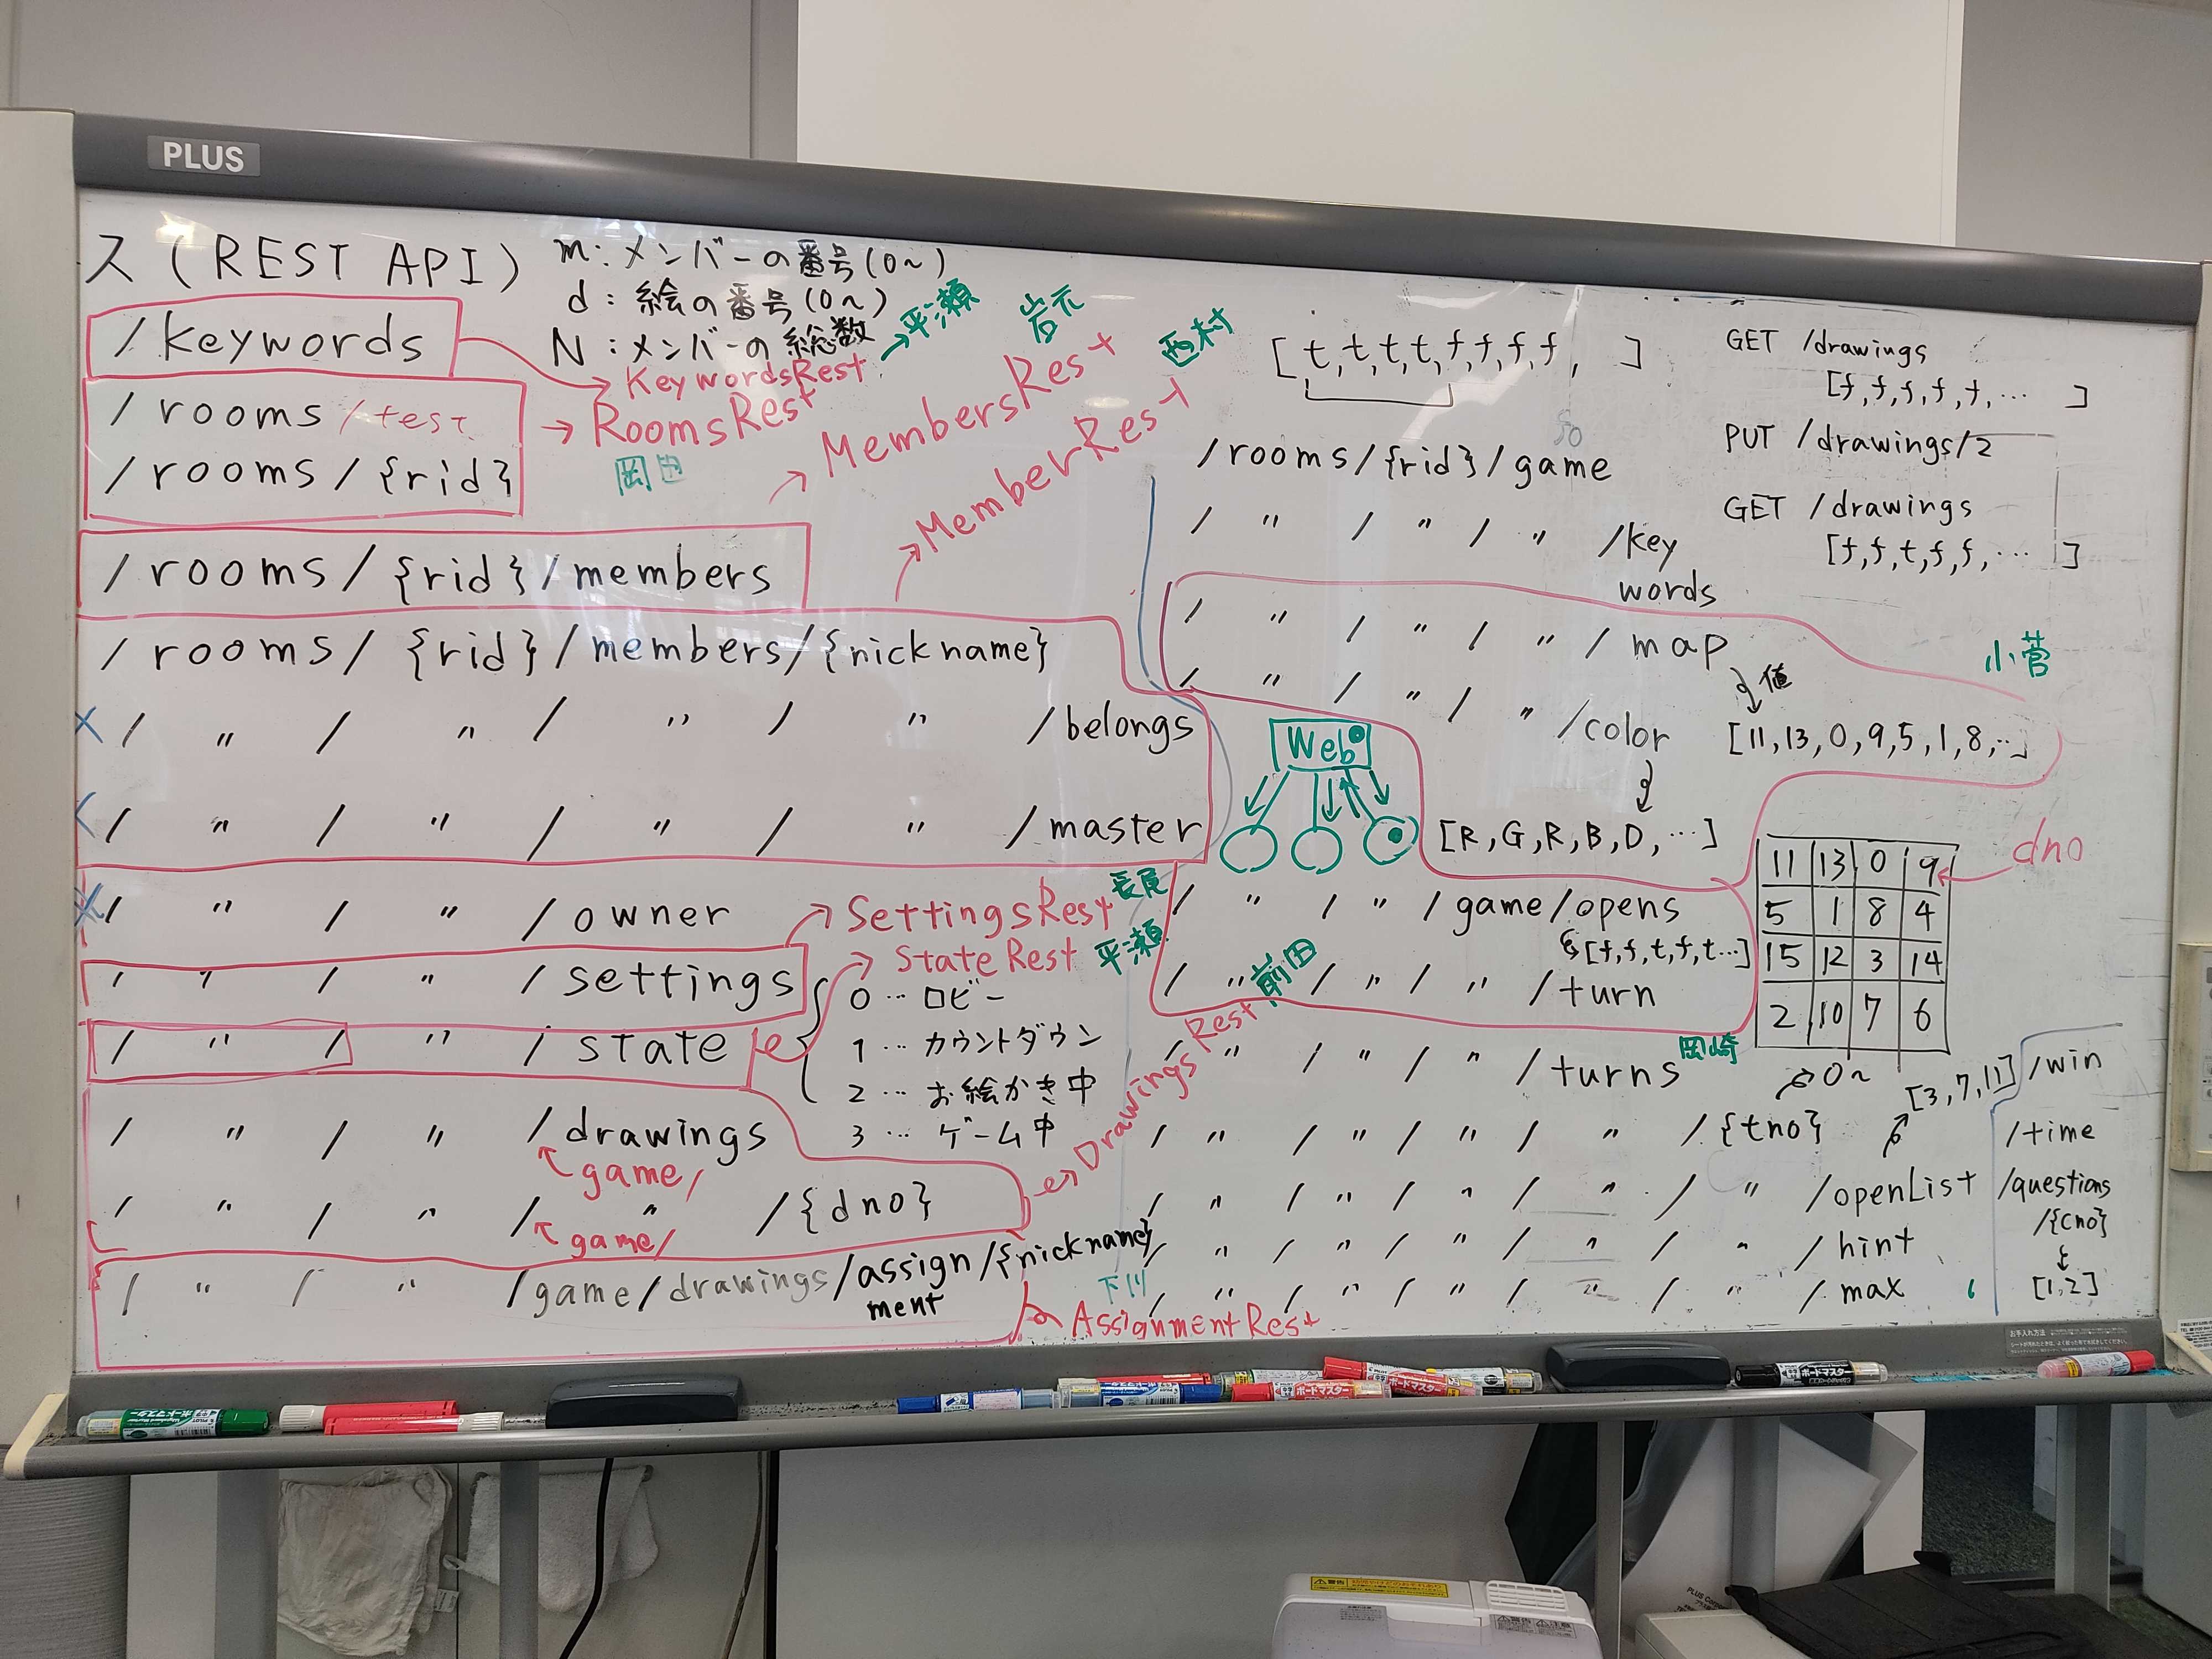 PLUS
ス (REST API)
m:メンバーの番号(0~)
d:絵の番号(0~)
N:メンバーの総数
/keywords
KeywordsRest
平瀬
/rooms/test
/rooms/{rid}
RoomsRest
岡田
MembersRest
岩元
MemberRest
西村
/rooms/{rid}/members
/rooms/{rid}/members/{nickname}
/ 〃 / 〃 / 〃 / 〃 /belongs
/ 〃 / 〃 / 〃 / 〃 /master
/ 〃 / 〃 /owner
/ 〃 / 〃 /settings
SettingsRest
長尾
/ 〃 / 〃 /state
StateRest
平瀬
0…ロビー
1…カウントダウン
2…お絵かき中
3…ゲーム中
/ 〃 / 〃 /drawings
game/
/ 〃 / 〃 / 〃 /{dno}
game/
DrawingsRest
前田
/ 〃 / 〃 /game/drawings/assign/{nickname}
ment
下川
AssignmentRest
[t,t,t,t,f,f,f,f, ]
/rooms/{rid}/game
/ 〃 / 〃 / 〃 /key
words
/ 〃 / 〃 / 〃 /map
値
[11,13,0,9,5,1,8,…]
小菅
/ 〃 / 〃 / 〃 /color
[R,G,R,B,D,…]
Web
/ 〃 / 〃 /game/opens
[f,f,t,f,t…]
/ 〃 / 〃 / 〃 /turn
/ 〃 / 〃 / 〃 /turns
岡崎
/ 〃 / 〃 / 〃 / 〃 /{tno}
0~
/ 〃 / 〃 / 〃 / 〃 / 〃 /openList
[3,7,11]
/ 〃 / 〃 / 〃 / 〃 / 〃 /hint
/ 〃 / 〃 / 〃 / 〃 / 〃 /max
GET /drawings
[f,f,f,f,f,… ]
PUT /drawings/2
GET /drawings
[f,f,t,f,f,… ]
11 13 0 9
5 1 8 4
15 12 3 14
2 10 7 6
dno
/win
/time
/questions
/{cno}
[1,2]
お手入れ方法
ボードマスター
ボードマスター
ボードマスター
ボードマスター